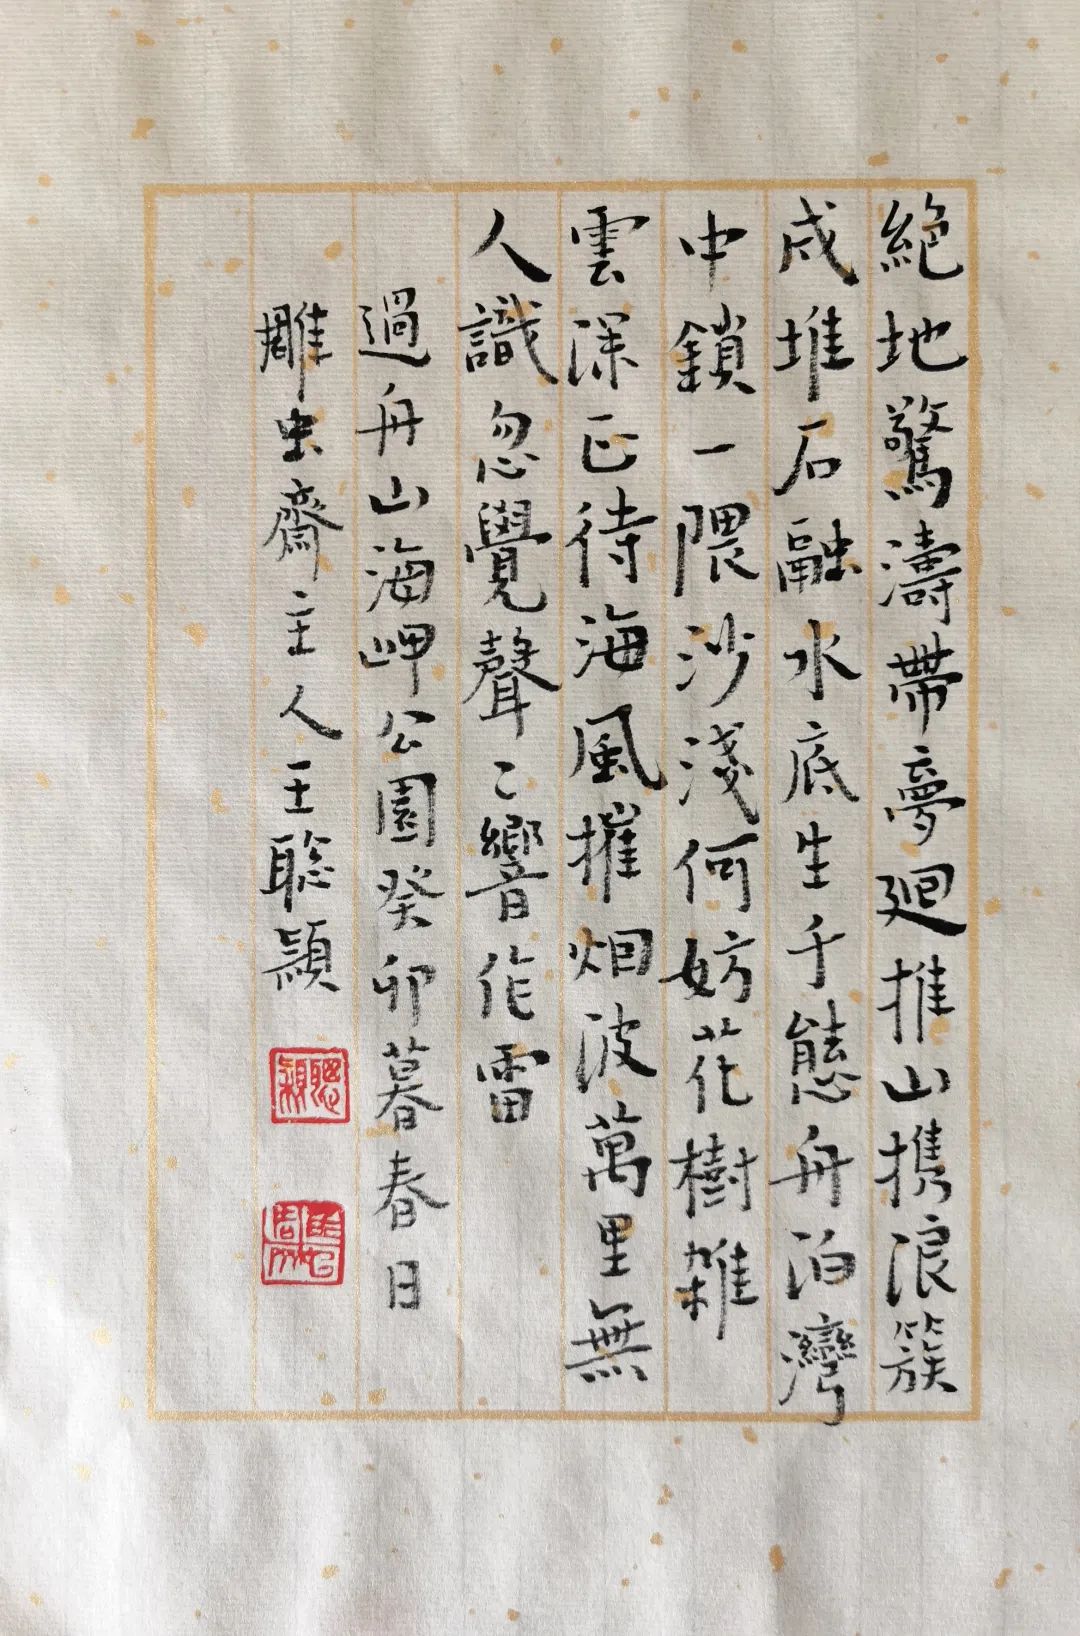 絕地驚濤帶夢廻推山携浪簇
成堆石融水底生千態舟泊灣
中鎖一隈沙淺何妨花樹雜
雲深正待海風摧烟波萬里無
人識忽覺聲〻響作雷
過舟山海岬公園癸卯暮春日
雕虫齋主人王聡穎
聰穎